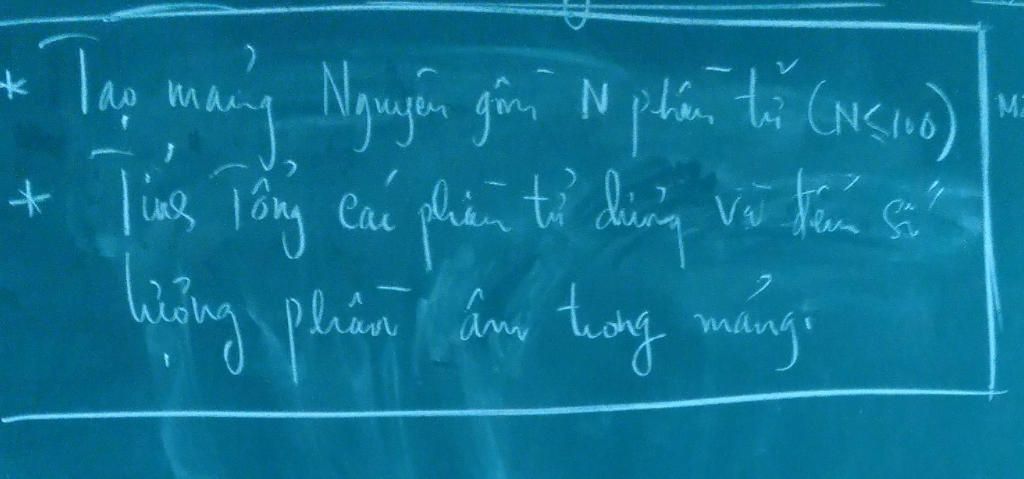 * Tạo mảng Nguyên gồm N phần tử (N≤100)
* Tính Tổng các phần tử dương và đếm số
lượng phần âm trong mảng.